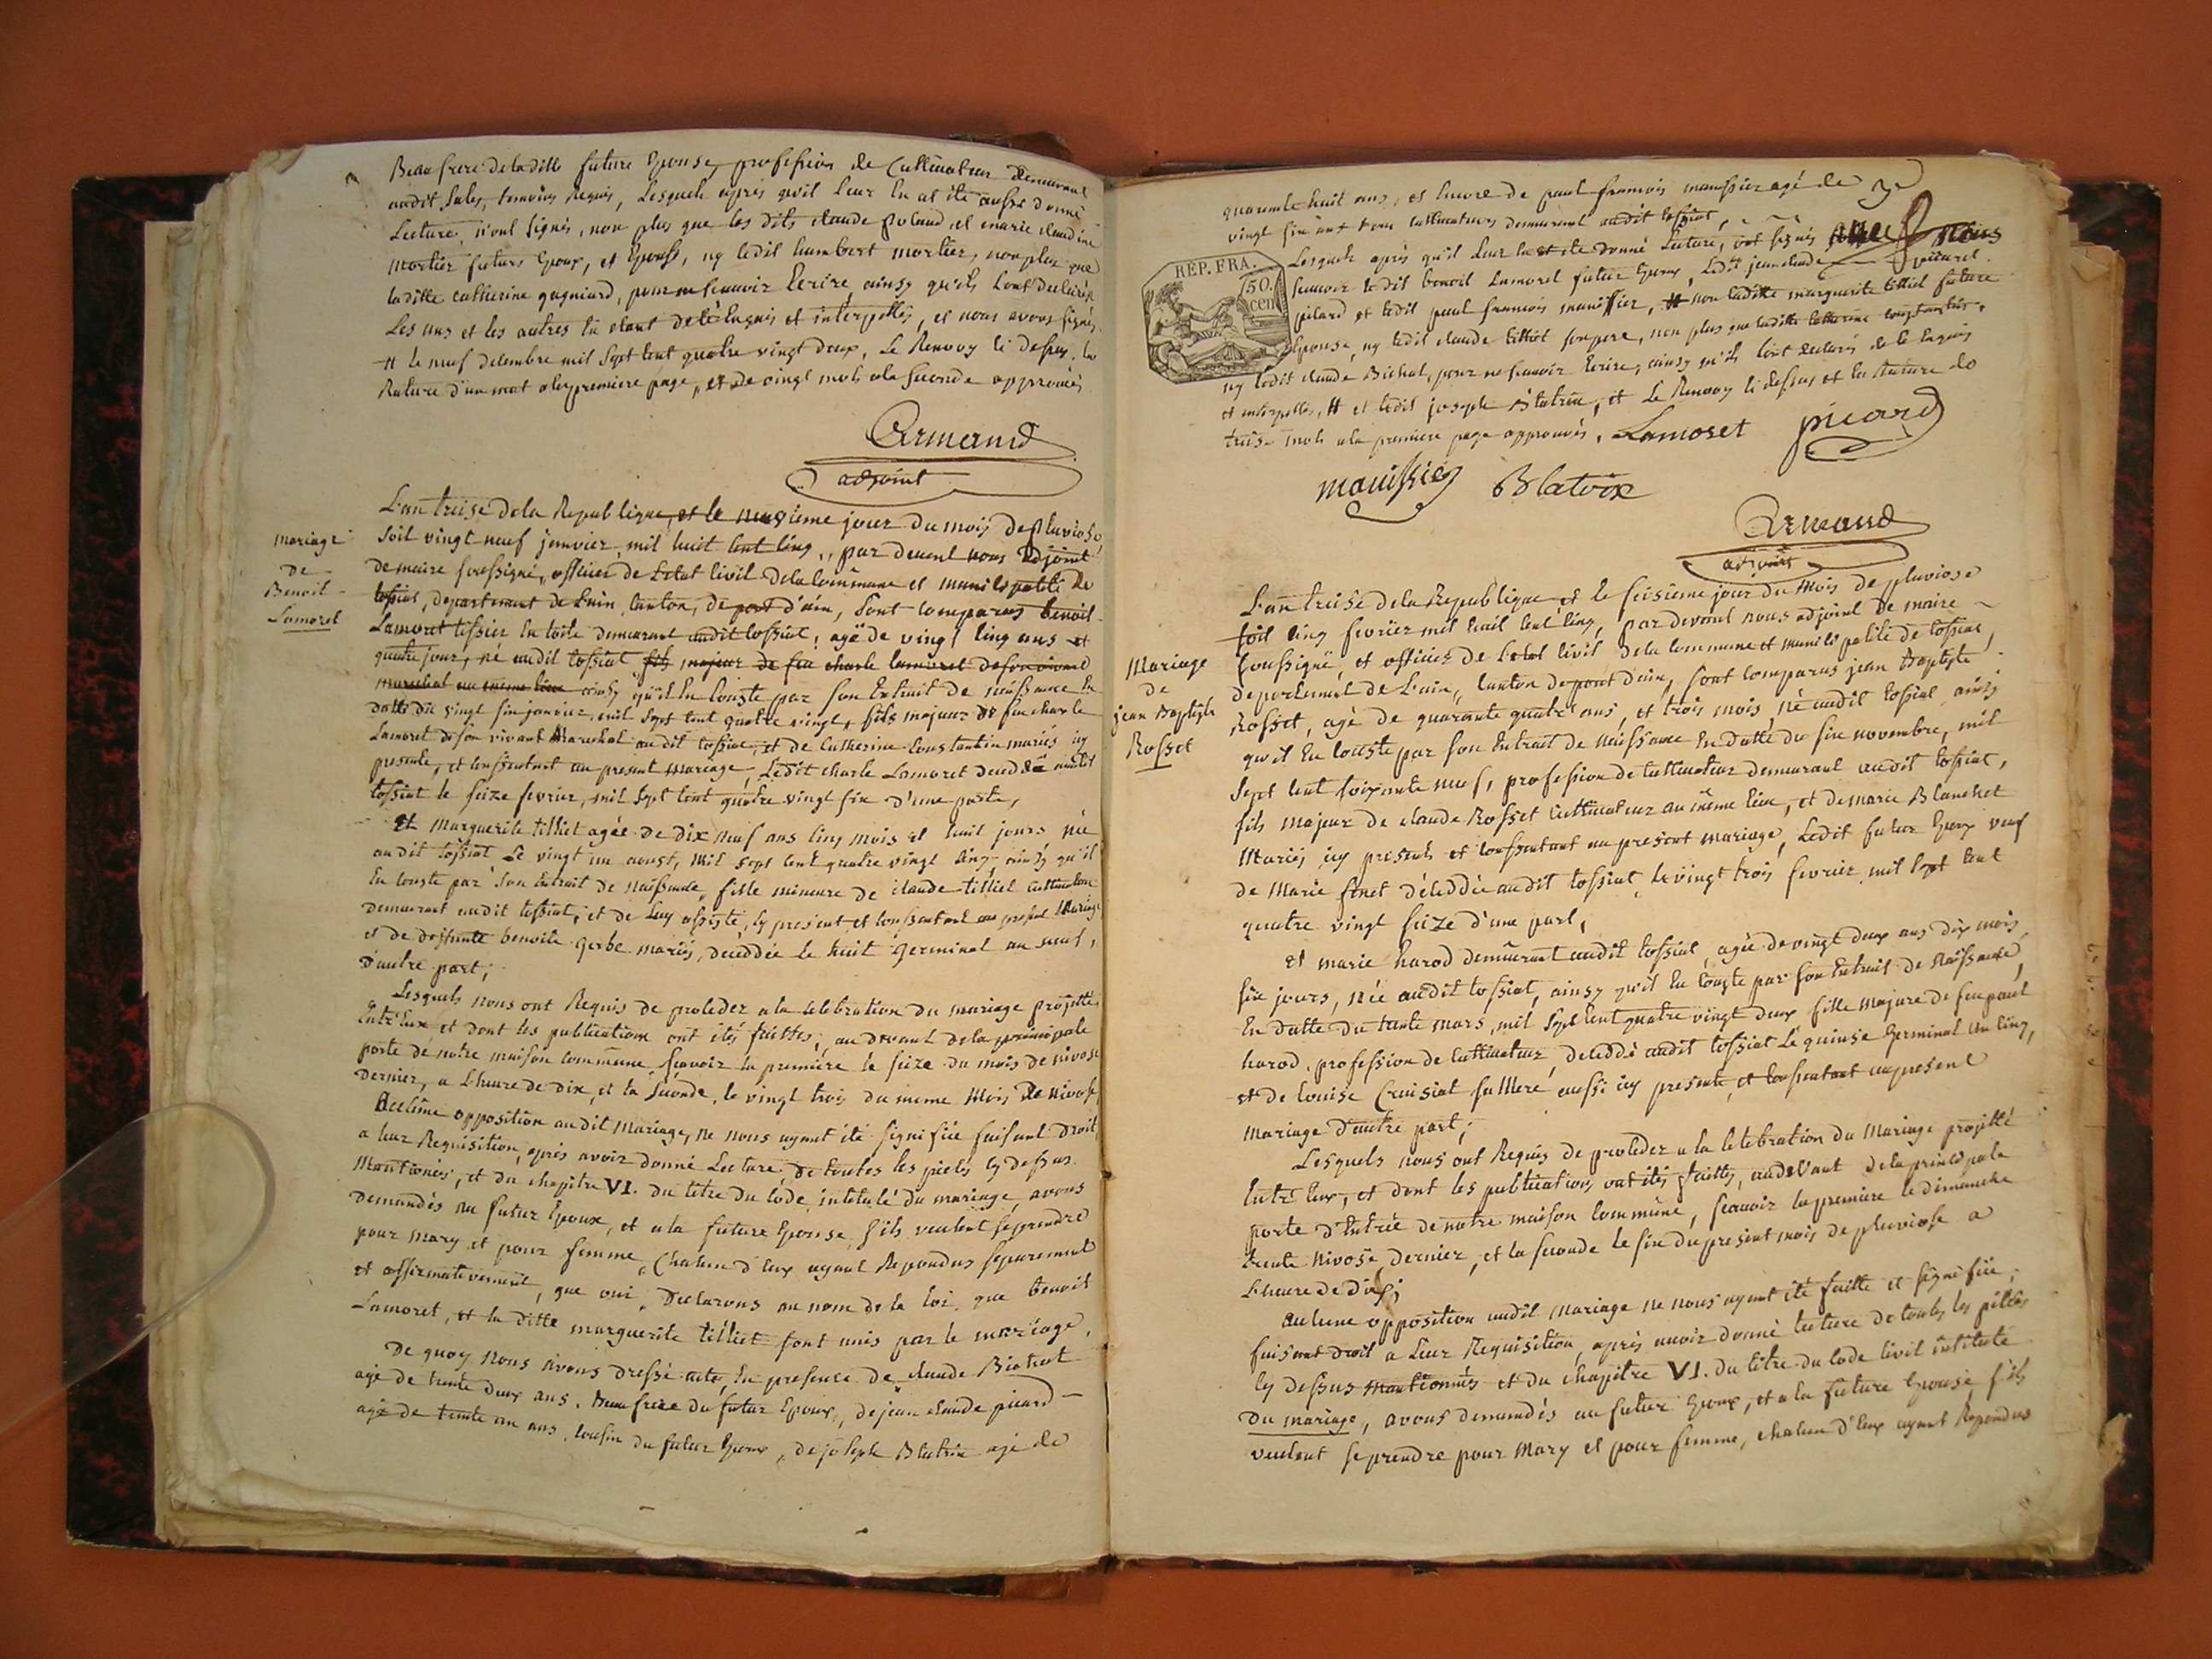 Beau frere de la ditte future Epouse, profession de Cultivateur demeurant
audit Sales, temoins Requis, Lesquels apres qu'il leur En at été aussi donné
Lecture, n'ont signés, non plus que les dits claude poland, et marie claudine
mortier futurs Epoux, et Epouse, ny ledit humbert mortier, non plus que
laditte catherine gagniard, pour ne scavoir Ecrire ainsy qu'ils l'ont declarés
Les uns et les autres En etant de ce Enquis et interpellés, et nous avons signés.
# le neuf decembre mil sept cent quatre vingt deux, Le Renvoy ci dessus, la
Rature d'un mot a la premiere page, et de vingt mots a la seconde approuvés
Armand
adjoint
mariage
de
Benoit
Lamoret
L'an treise de la Republique, et le neuvieme jour du mois de pluviose,
soit vingt neuf janvier, mil huit cent cinq, par devent nous adjoint
de maire soussigné, officier de L'etat civil de la commune et municipalité de
tossiat, departement de L'ain, canton, de pont d'ain, sont comparus benoit
Lamoret tissier En toile demeurant audit tossiat, agé de vingt cinq ans et
quatre jour, né audit tossiat fils majeur de feu charle lamoret de son vivant
marechal au même lieu ainsy qu'il En conste par son Extrait de naissance En
datte du vingt six janvier, mil sept cent quatre vingt, fils majeur de feu charle
Lamoret de son vivant Marechal audit tossiat, et de Catherine Constantin mariés icy
presente, et consentant au present mariage, Ledit charle Lamoret deceddé audit
tossiat le seize fevrier, mil sept cent quatre vingt six d'une parte,
Et Marguerite tilliet agée de dix neuf ans cinq mois et huit jours née
audit tossiat Le vingt un aoust, mil sept cent quatre vingt cinq ainsy qu'il
En conste par son Extrait de naissance, fille mineure de claude tilliet cultivateur
demeurant audit tossiat, et de Luy assisté, cy present et consentant au present Mariage
et de deffunte benoite gerbe mariés, deceddée le huit germinal an neuf,
d'autre part;
Lesquels nous ont Requis de proceder a la celebration du mariage projetté
Entr'Eux et dont les publications ont étés faittes, au devant de la principale
porte de notre maison commune, scavoir la premiére le seize du mois de nivose
dernier, a L'heure de dix, et la seconde, le vingt trois du meme Mois de Nivose
Aucune opposition audit Mariage, ne nous ayant été signifiée faisant droit
a leur Requisition, apres avoir donné Lecture de toutes les pieces cy dessus
Mentionnés, et du chapitre VI. du titre du Code, intitulé du mariage, avons
demandés au futur Epoux, et a la future Epouse, s'ils veulent se prendre
pour mary et pour femme, Chacun d'Eux ayant Repondus separement
et affirmativement, que oui, Declarons au nom de la loi que benoit
Lamoret, et la ditte marguerite tilliet sont unis par le mariage.
De quoy nous avons dressé acte, En presence de claude Bichat
agé de trente deux ans, beau frere du futur Epoux, de jean claude picard
agé de trente un ans, cousin du futur Epoux, de joseph Blatrix agé de
quarante huit ans, et Encore de paul francois maussier agé de
vingt six ans tous cultivateurs demeurant audit tossiat,
REP. FRA.
50.
cen
Lesquels apres qu'il Leur En at été donné Lecture, ont signés avec nous
scavoir le dit benoit Lamoret futur Epoux, Ledit jean claude picard
picard et ledit paul francois maussier, # non laditte marguerite tilliet future
Epouse, ny ledit claude tilliet son pere, non plus que laditte catherine constantin,
ny ledit claude Bichat, pour ne scavoir Ecrire, ainsy qu'ils l'ont declarés de ce Enquis
et interpellés, # et ledit joseph Blatrix, et Le Renvoy ci dessus et la Rature de
treise mots a la premiere page approuvés. Lamoret picard
maussier Blatrix
Armand
adjoint
Mariage
de
jean Baptiste
Rosset
L'an treise de la Republique et le seisieme jour du Mois de pluviose
soit cinq fevrier mil huit cent cinq, par devent nous adjoint de maire
soussigné, et officier de L'etat civil de la commune et municipalité de tossiat,
departement de L'ain, canton de pont d'ain, sont comparus jean Baptiste
Rosset, agé de quarante quatre ans, et trois mois, né audit tossiat ainsy
qu'il En conste par son Extrait de naissance En datte du six novembre, mil
sept cent soixante neuf, profession de cultivateur demeurant audit tossiat,
fils majeur de claude Rosset cultivateur au même lieu, et de marie Blanchet
Mariés icy presents et consentant au present mariage, Ledit futur Epoux veuf
de Marie finet déceddée audit tossiat, le vingt trois fevrier mil sept cent
quatre vingt seize d'une part,
Et marie harod demeurant audit tossiat, agée de vingt deux ans dix mois,
six jours, née audit tossiat, ainsy qu'il En conste par son Extrait de Naissance,
En datte du trente mars, mil sept cent quatre vingt deux fille Majure de feu paul
harod, profession de cultivateur, deceddé audit tossiat Le quinse Germinal an cinq,
et de louise Cruisiat sa Mere, aussi icy presente, et consentant au present
Mariage d'autre part;
Lesquels nous ont Requis de proceder a la celebration du Mariage projetté
Entr'Eux, et dont les publications ont étés faittes, au devant de la principale
porte d'Entrée de notre maison commune, scavoir la premiere le dimanche
trente Nivose dernier, et la seconde le six du present mois de pluviose a
L'heure de dix;
Aucune opposition audit Mariage ne nous ayant été faitte et signifiée,
faisant droit a Leur Requisition, apres avoir donné lecture de toutes les piéces
cy dessus mentionnés et du chapitre VI. du titre du Code civil intitulé
du mariage, avons demandés au futur Epoux, et a la future Epouse s'ils
veulent se prendre pour Mary et pour femme, chacun d'Eux ayant Repondus